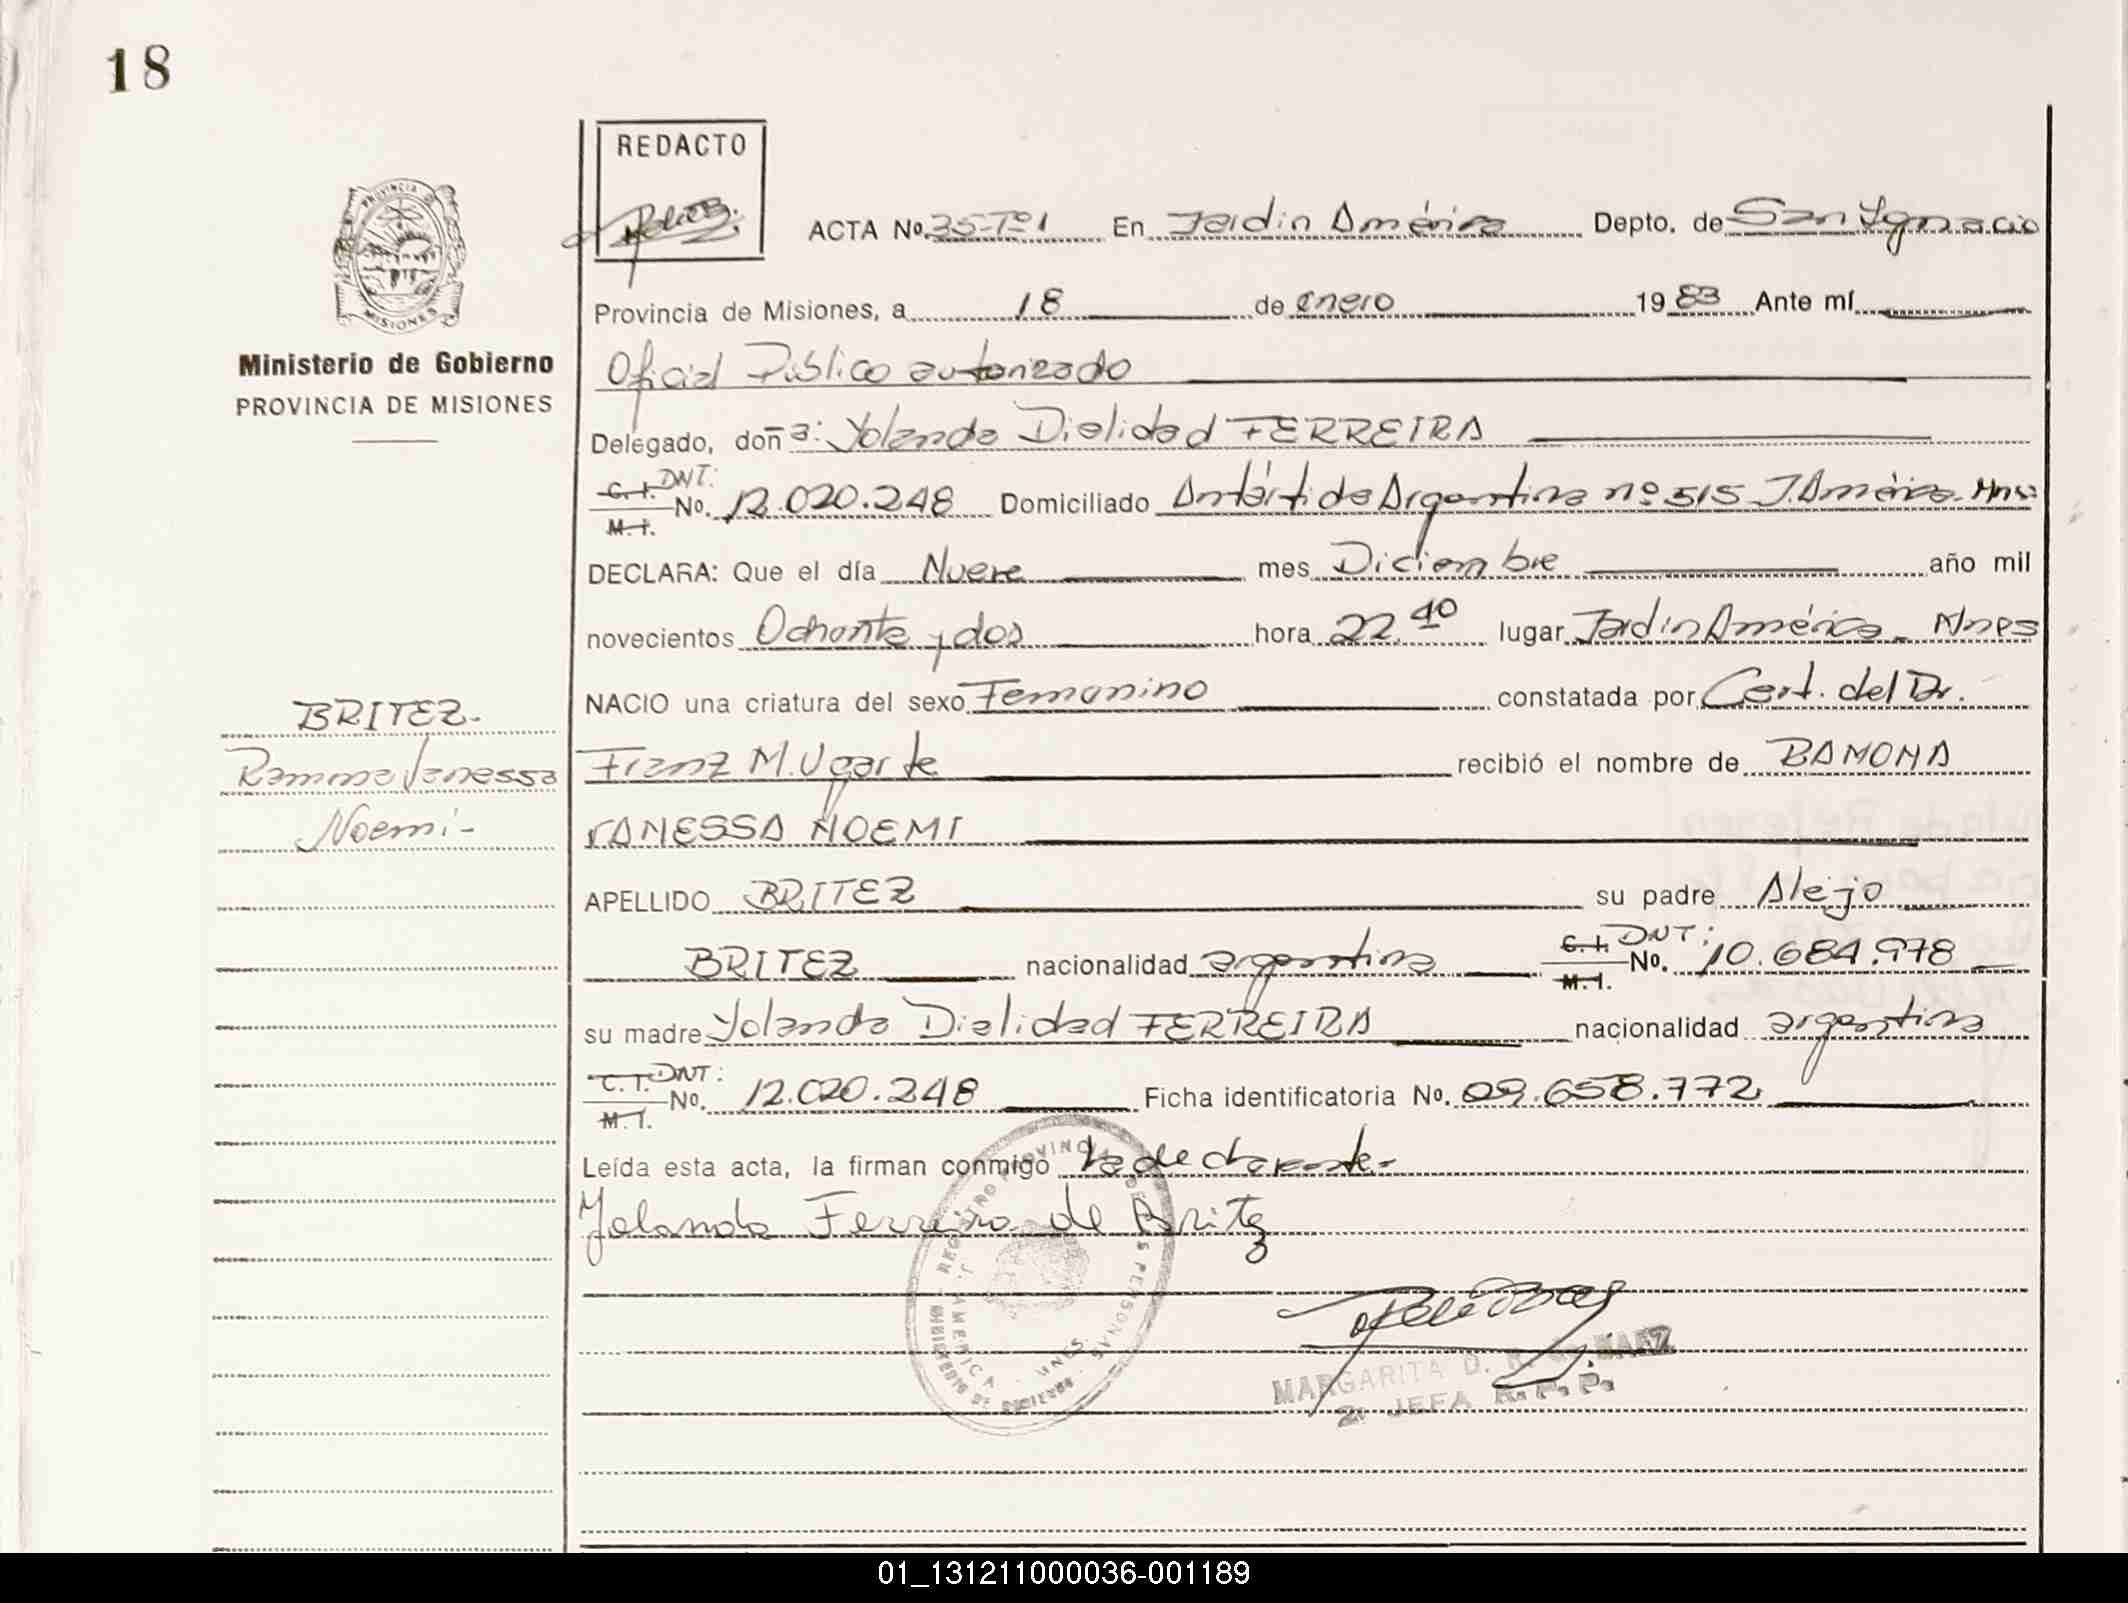 18
REDACTO
ACTA No. 35-Tº1 En Jardin América Depto. de San Ignacio
Provincia de Misiones, a 18 de enero 1983 Ante mí
PROVINCIA DE MISIONES
Ministerio de Gobierno
PROVINCIA DE MISIONES
Oficial Público autorizado
Delegado, don a: Yolanda Dielidad FERREIRA
C.I. DNI: M.I. No. 12.020.248 Domiciliado Antártida Argentina nº 515 J. América. Mns:
DECLARA: Que el día Nueve mes Diciembre año mil
novecientos Ochenta y dos hora 22.40 lugar Jardin América - Mnes
NACIO una criatura del sexo Femenino constatada por Cert. del Dr.
BRITEZ.
Ramona Vanessa
Noemi-
Franz M. Ugarte recibió el nombre de RAMONA
VANESSA NOEMI
APELLIDO BRITEZ su padre Alejo
BRITEZ nacionalidad argentina C.I. DNI: M.I. No. 10.684.978
su madre Yolanda Dielidad FERREIRA nacionalidad argentina
C.I. DNI: M.I. No. 12.020.248 Ficha identificatoria No. 09.658.772
Leída esta acta, la firman conmigo la declarante-
Yolanda Ferreira de Britez
REGISTRO PROVINCIAL DE LAS PERSONAS
J. AMERICA - MNES.
MINISTERIO DE GOBIERNO
MARGARITA D.
2ª JEFA R. P. P.
01_131211000036-001189